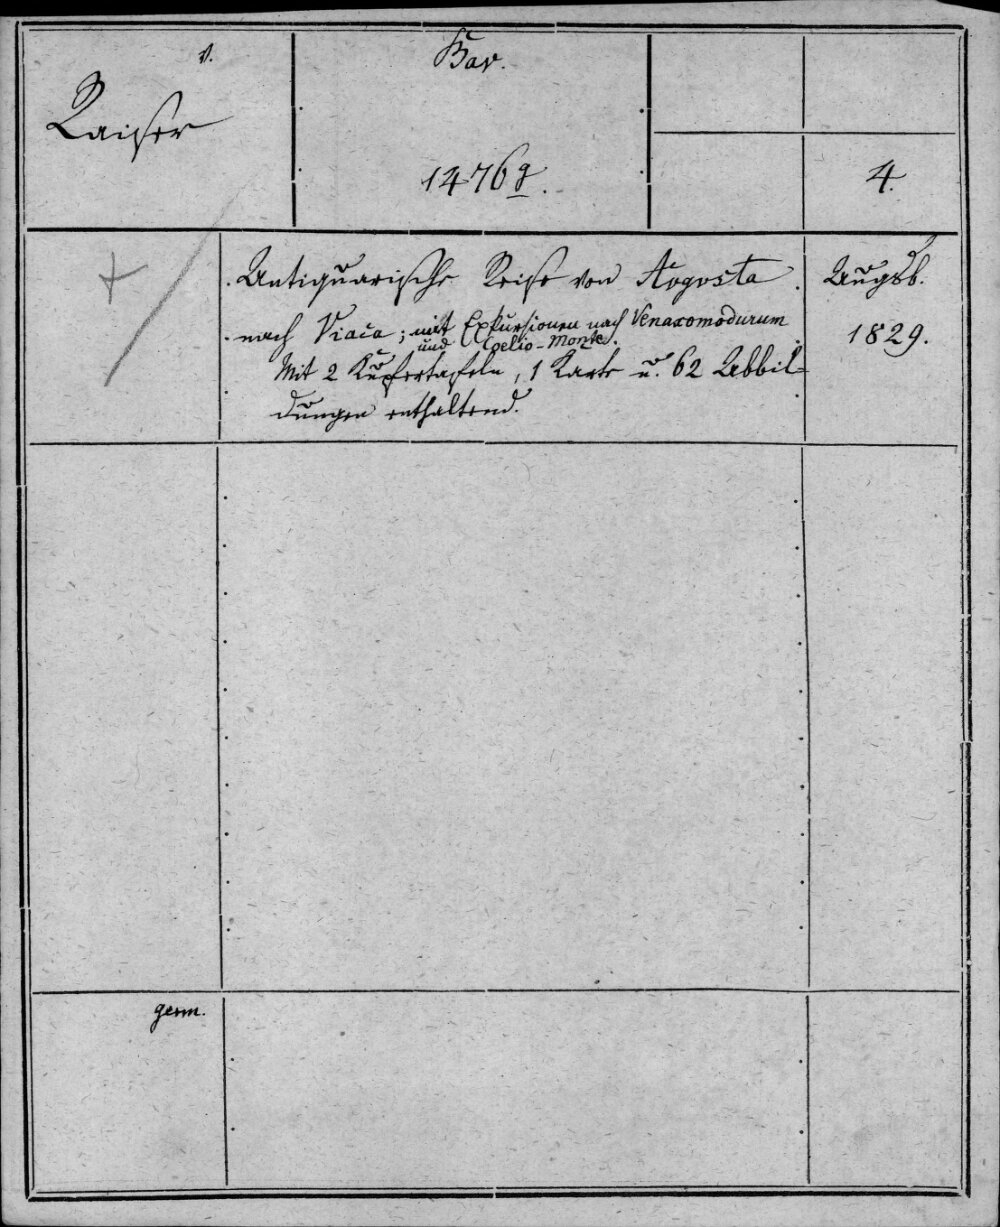 v.
Raiser
Bav.
1476 g.
4.
+
Antiquarische Reise von Augusta
nach Viaca; mit Exkursionen nach Venaxomodurum
und Coelio-Monte.
Mit 2 Kupfertafeln, 1 Karte u. 62 Abbil-
dungen enthaltend.
Augsb.
1829.
germ.